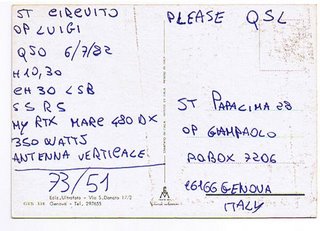 ST CIRCUITO
OP LUIGI
QSO 6/7/82
H 10,30
CH 30 LSB
S 5 R 5
MY RTX MARC 480 DX
350 WATTS
ANTENNA VERTICALE
73/51
Ediz. Ultrafoto - Via S. Donato 17/2
GES 134 Genova - Tel. 297655
PLEASE QSL
ST PAPACIMA 28
OP GIAMPAOLO
PO BOX 7206
16166 GENOVA
ITALY